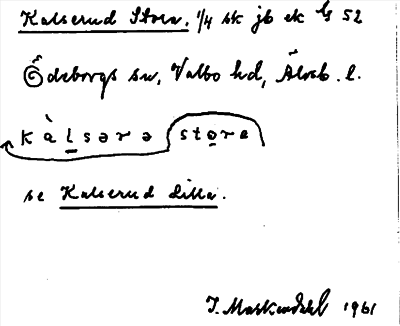 Kalserud Stora, 1/4 sk jb ek ls 52
Ödeborgs sn, Valbo hd, Älvsb. l.
kàlsərə störa
se Kalserud Lilla.
J. Markendahl 1961